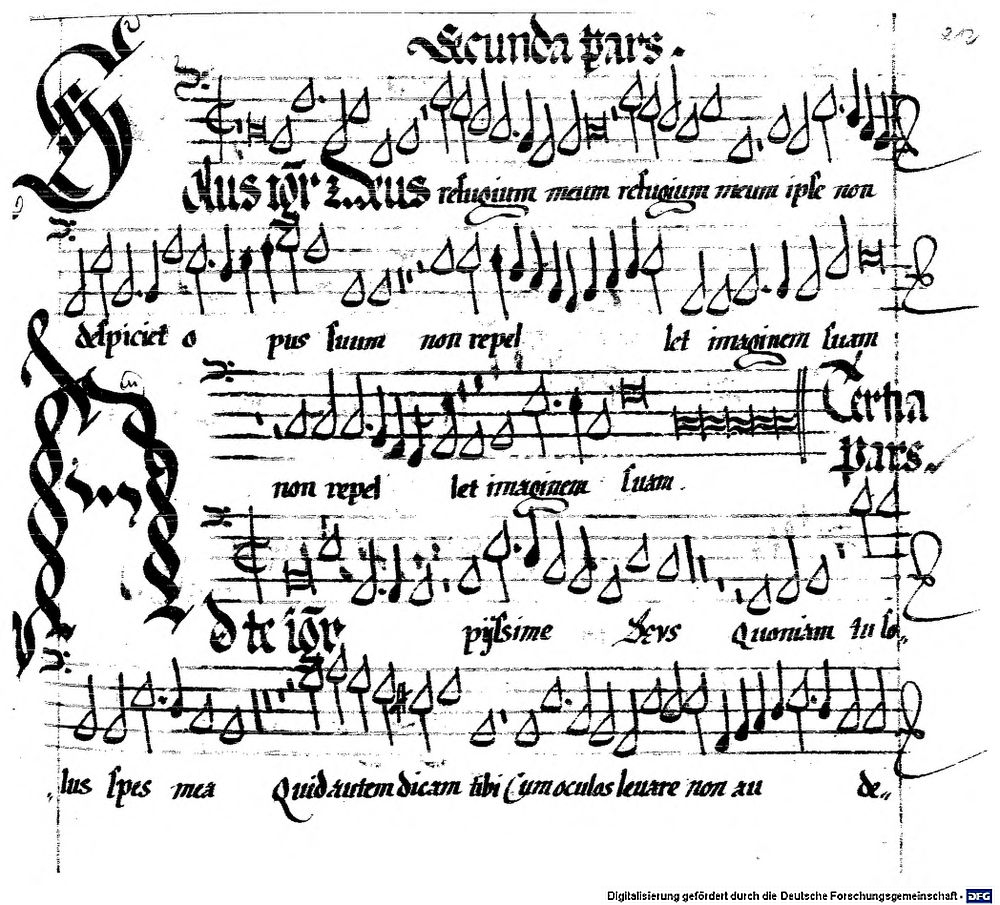 Secunda pars.
212
Salus iō̄r z Deus refugium meum refugium meum ipse non
despiciet o pus suum non repel let imaginem suam
non repel let imaginem suam.
Tertia
Pars.
Ad te iō̄r pijssime Deus Quoniam tu so„
„lus spes mea Quid autem dicam tibi Cum oculos levare non au de„
Digitalisierung gefördert durch die Deutsche Forschungsgemeinschaft - DFG